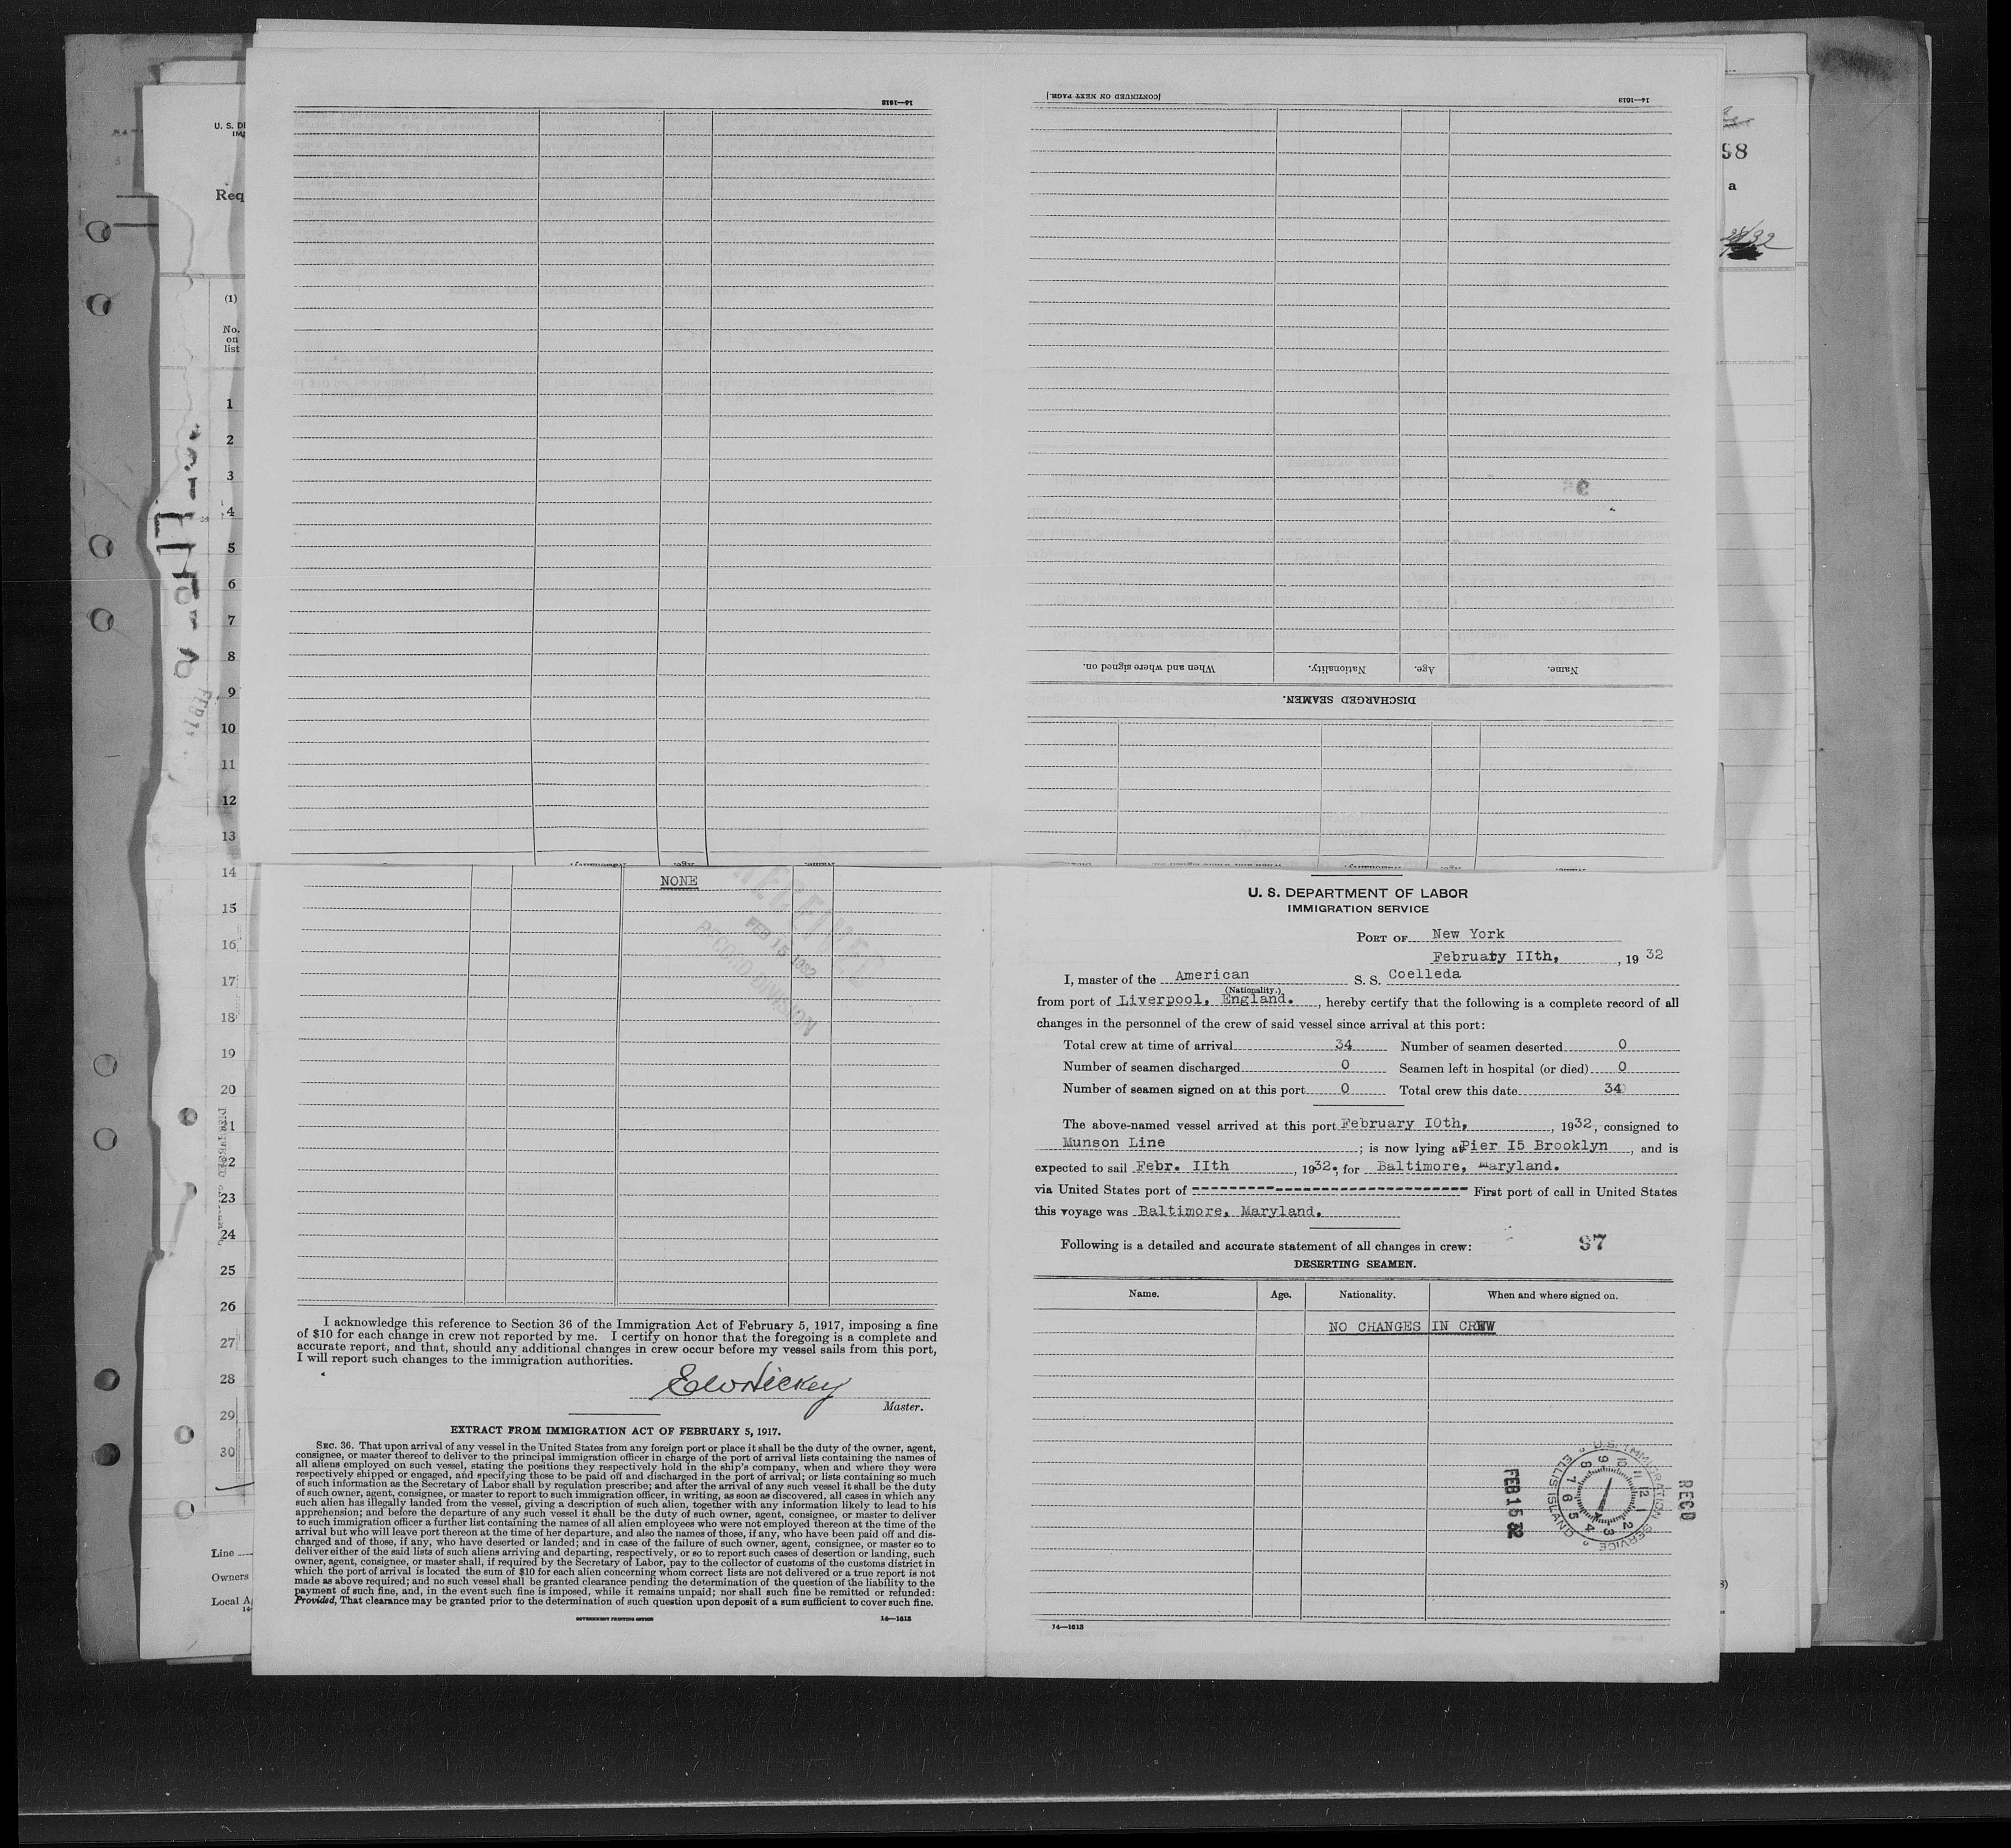 14—1613
[CONTINUED ON NEXT PAGE.]
14—1613
Name.
Age.
Nationality.
When and where signed on.
DISCHARGED SEAMEN.
U. S. DE
Req
(1)
No.
on
list
1
2
3
4
5
6
7
8
9
10
11
12
13
14
15
16
17
18
19
20
21
22
23
24
25
26
27
28
29
30
Line
Owners
Local A
98
a
NONE
RECEIVED
FEB 15 1932
RECORD DIVISION
I acknowledge this reference to Section 36 of the Immigration Act of February 5, 1917, imposing a fine
of $10 for each change in crew not reported by me. I certify on honor that the foregoing is a complete and
accurate report, and that, should any additional changes in crew occur before my vessel sails from this port,
I will report such changes to the immigration authorities.
EWHickey
Master.
EXTRACT FROM IMMIGRATION ACT OF FEBRUARY 5, 1917.
SEC. 36. That upon arrival of any vessel in the United States from any foreign port or place it shall be the duty of the owner, agent,
consignee, or master thereof to deliver to the principal immigration officer in charge of the port of arrival lists containing the names of
all aliens employed on such vessel, stating the positions they respectively hold in the ship's company, when and where they were
respectively shipped or engaged, and specifying those to be paid off and discharged in the port of arrival; or lists containing so much
of such information as the Secretary of Labor shall by regulation prescribe; and after the arrival of any such vessel it shall be the duty
of such owner, agent, consignee, or master to report to such immigration officer, in writing, as soon as discovered, all cases in which any
such alien has illegally landed from the vessel, giving a description of such alien, together with any information likely to lead to his
apprehension; and before the departure of any such vessel it shall be the duty of such owner, agent, consignee, or master to deliver
to such immigration officer a further list containing the names of all alien employees who were not employed thereon at the time of the
arrival but who will leave port thereon at the time of her departure, and also the names of those, if any, who have been paid off and dis-
charged and of those, if any, who have deserted or landed; and in case of the failure of such owner, agent, consignee, or master so to
deliver either of the said lists of such aliens arriving and departing, respectively, or so to report such cases of desertion or landing, such
owner, agent, consignee, or master shall, if required by the Secretary of Labor, pay to the collector of customs of the customs district in
which the port of arrival is located the sum of $10 for each alien concerning whom correct lists are not delivered or a true report is not
made as above required; and no such vessel shall be granted clearance pending the determination of the question of the liability to the
payment of such fine, and, in the event such fine is imposed, while it remains unpaid; nor shall such fine be remitted or refunded:
Provided, That clearance may be granted prior to the determination of such question upon deposit of a sum sufficient to cover such fine.
GOVERNMENT PRINTING OFFICE
14—1613
U. S. DEPARTMENT OF LABOR
IMMIGRATION SERVICE
PORT OF New York
February IIth, , 19 32
I, master of the American S. S. Coelleda
(Nationality.)
from port of Liverpool, England. , hereby certify that the following is a complete record of all
changes in the personnel of the crew of said vessel since arrival at this port:
Total crew at time of arrival 34 Number of seamen deserted 0
Number of seamen discharged 0 Seamen left in hospital (or died) 0
Number of seamen signed on at this port 0 Total crew this date 34
The above-named vessel arrived at this port February I0th, , 1932, consigned to
Munson Line ; is now lying at Pier I5 Brooklyn , and is
expected to sail Febr. IIth , 1932, for Baltimore, Maryland.
via United States port of ------------------------------ First port of call in United States
this voyage was Baltimore, Maryland.
Following is a detailed and accurate statement of all changes in crew:
97
DESERTING SEAMEN.
Name. Age. Nationality. When and where signed on.
NO CHANGES IN CREW
FEB 15 32
U.S. IMMIGRATION SERVICE
ELLIS ISLAND
REC'D
14—1613